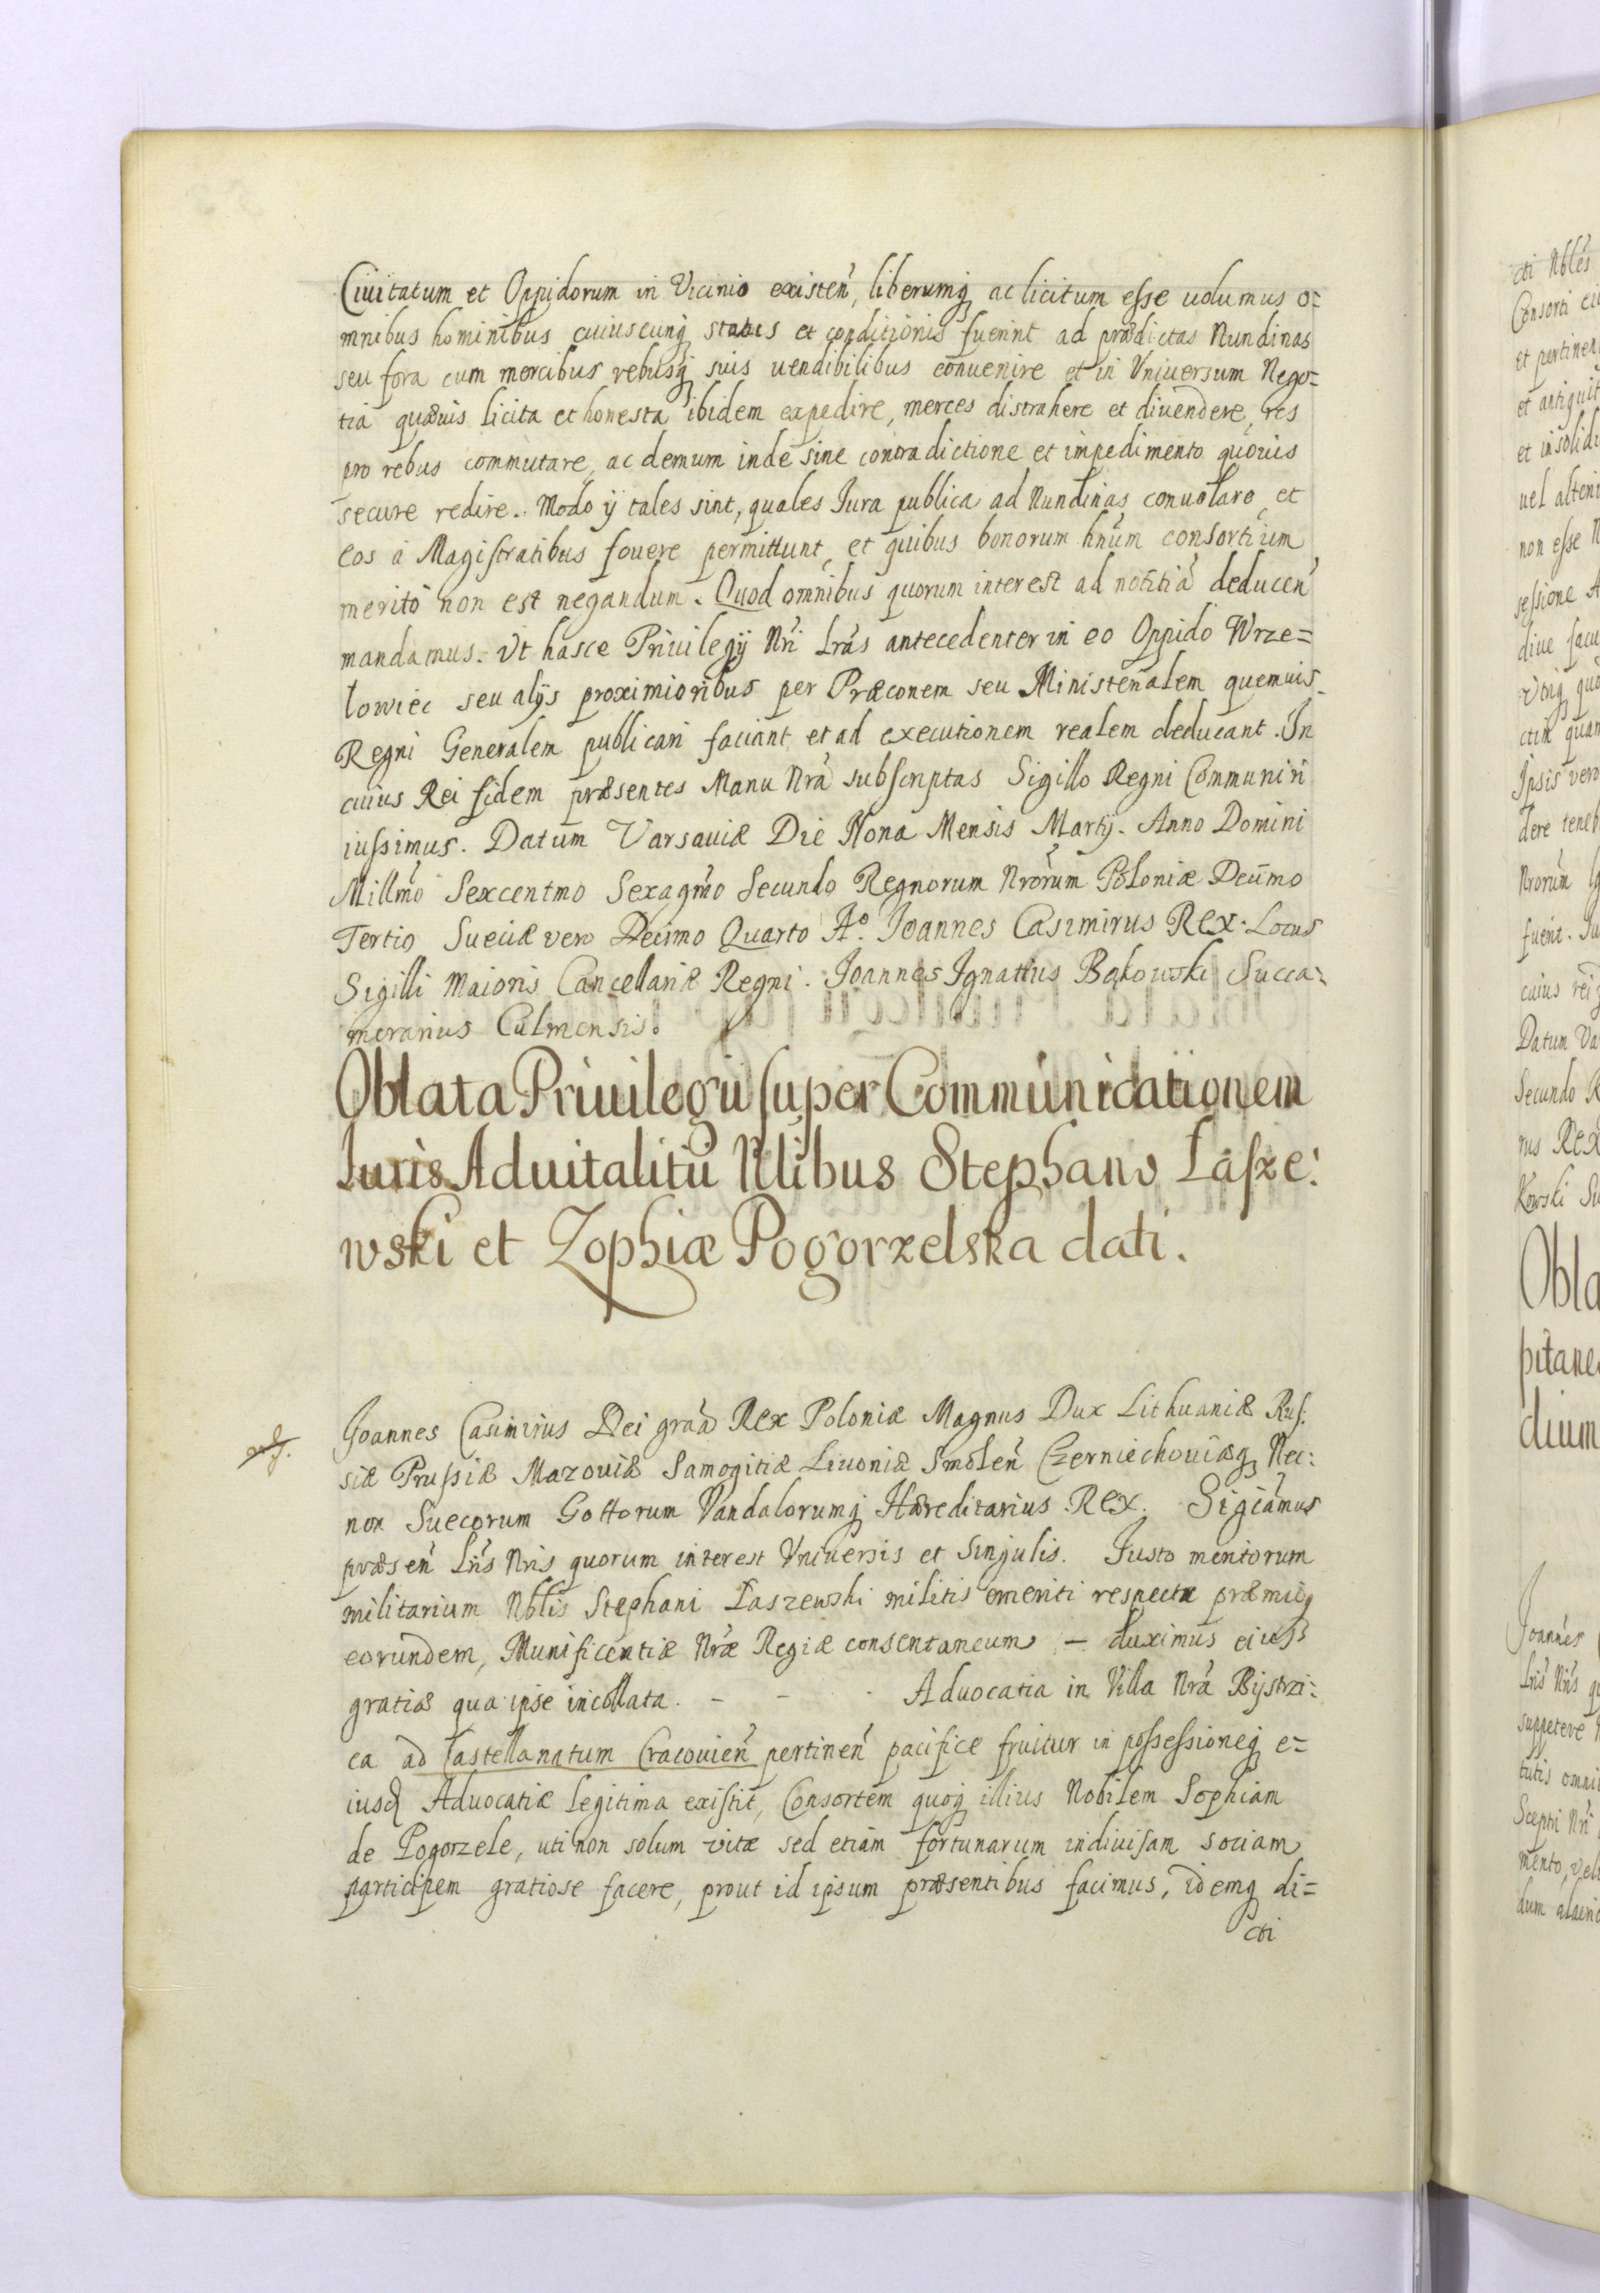 Ciuitatum et Oppidorum in Vicinio existeñ, liberumq ac licitum esse uolumus o=
mnibus hominibus cuiuscunq status et conditionis fuerint ad prædictas Nundinas
seu fora cum mercibus rebusq suis uendibilibus conuenire et in Vniuersum Nego=
tia quæuis licita et honesta ibidem expedire, merces distrahere et diuendere, res
pro rebus commutare, ac demum inde sine contradictione et impedimento quouis
secure redire. Modo ÿ tales sint, quales Jura publica ad Nundinas conuolare, et
eos a Magistratibus fouere permittunt, et quibus bonorum hnūm consortium
merito non est negandum. Quod omnibus quorum interest ad notitiã deduceñ
mandamus. Vt hasce Priuilegÿ Nri Lras antecedenter in eo Oppido Wrze=
lowiec seu alÿs proximioribus per Præconem seu Ministerialem quemuis
Regni Generalem publicari faciant et ad executionem realem deducant. In
cuius Rei fidem præsentes Manu Nrã subscriptas Sigillo Regni Communiri
iussimus. Datum Varsauiæ Die Nona Mensis Martÿ. Anno Domini
Millmo Sexcentmo Sexagmo Secundo Regnorum Nrorum Poloniæ Decimo
Tertio Sueciæ vero Decimo Quarto A.º Joannes Casimirus Rex. Locus
Sigilli Maioris Cancellariæ Regni. Joannes Ignatius Bąkowski Succa:
merarius Culmensis.
Oblata Priuilegii super Communicationem
Iuris Aduitalitii Nlibus Stephano Lasze:
wski et Zophiæ Pogorzelska dati.
Joannes Casimirus Dei gratia Rex Poloniæ Magnus Dux Lithuaniæ Rus:
siæ Prussiæ Mazouiæ Samogitiæ Liuoniæ Smoleñ Czerniechouiæq Nec:
non Suecorum Gottorum Vandalorumq Hæreditarius Rex. Sigiãmus
præseñ Lris Nris quorum interest Vniuersis et Singulis. Iusto meritorum
militarium Nblis Stephani Laszewski militis emeriti respectu præmiiq
eorundem, Munificentiæ Nræ Regiæ consentaneum – duximus eius
gratiæ qua ipse in collata. – – · Aduocatia in Villa Nrã Bÿstrzi:
ca ad Castellanatum Cracouieñ pertineñ pacifice fruitur in possessioneq e=
iusd Aduocatiæ legitima existit, Consortem quoq illius Nobilem Sophiam
de Pogorzele, uti non solum vitæ sed etiam fortunarum indiuisam sociam
participem gratiose facere, prout id ipsum præsentibus facimus, idemq di=
cti